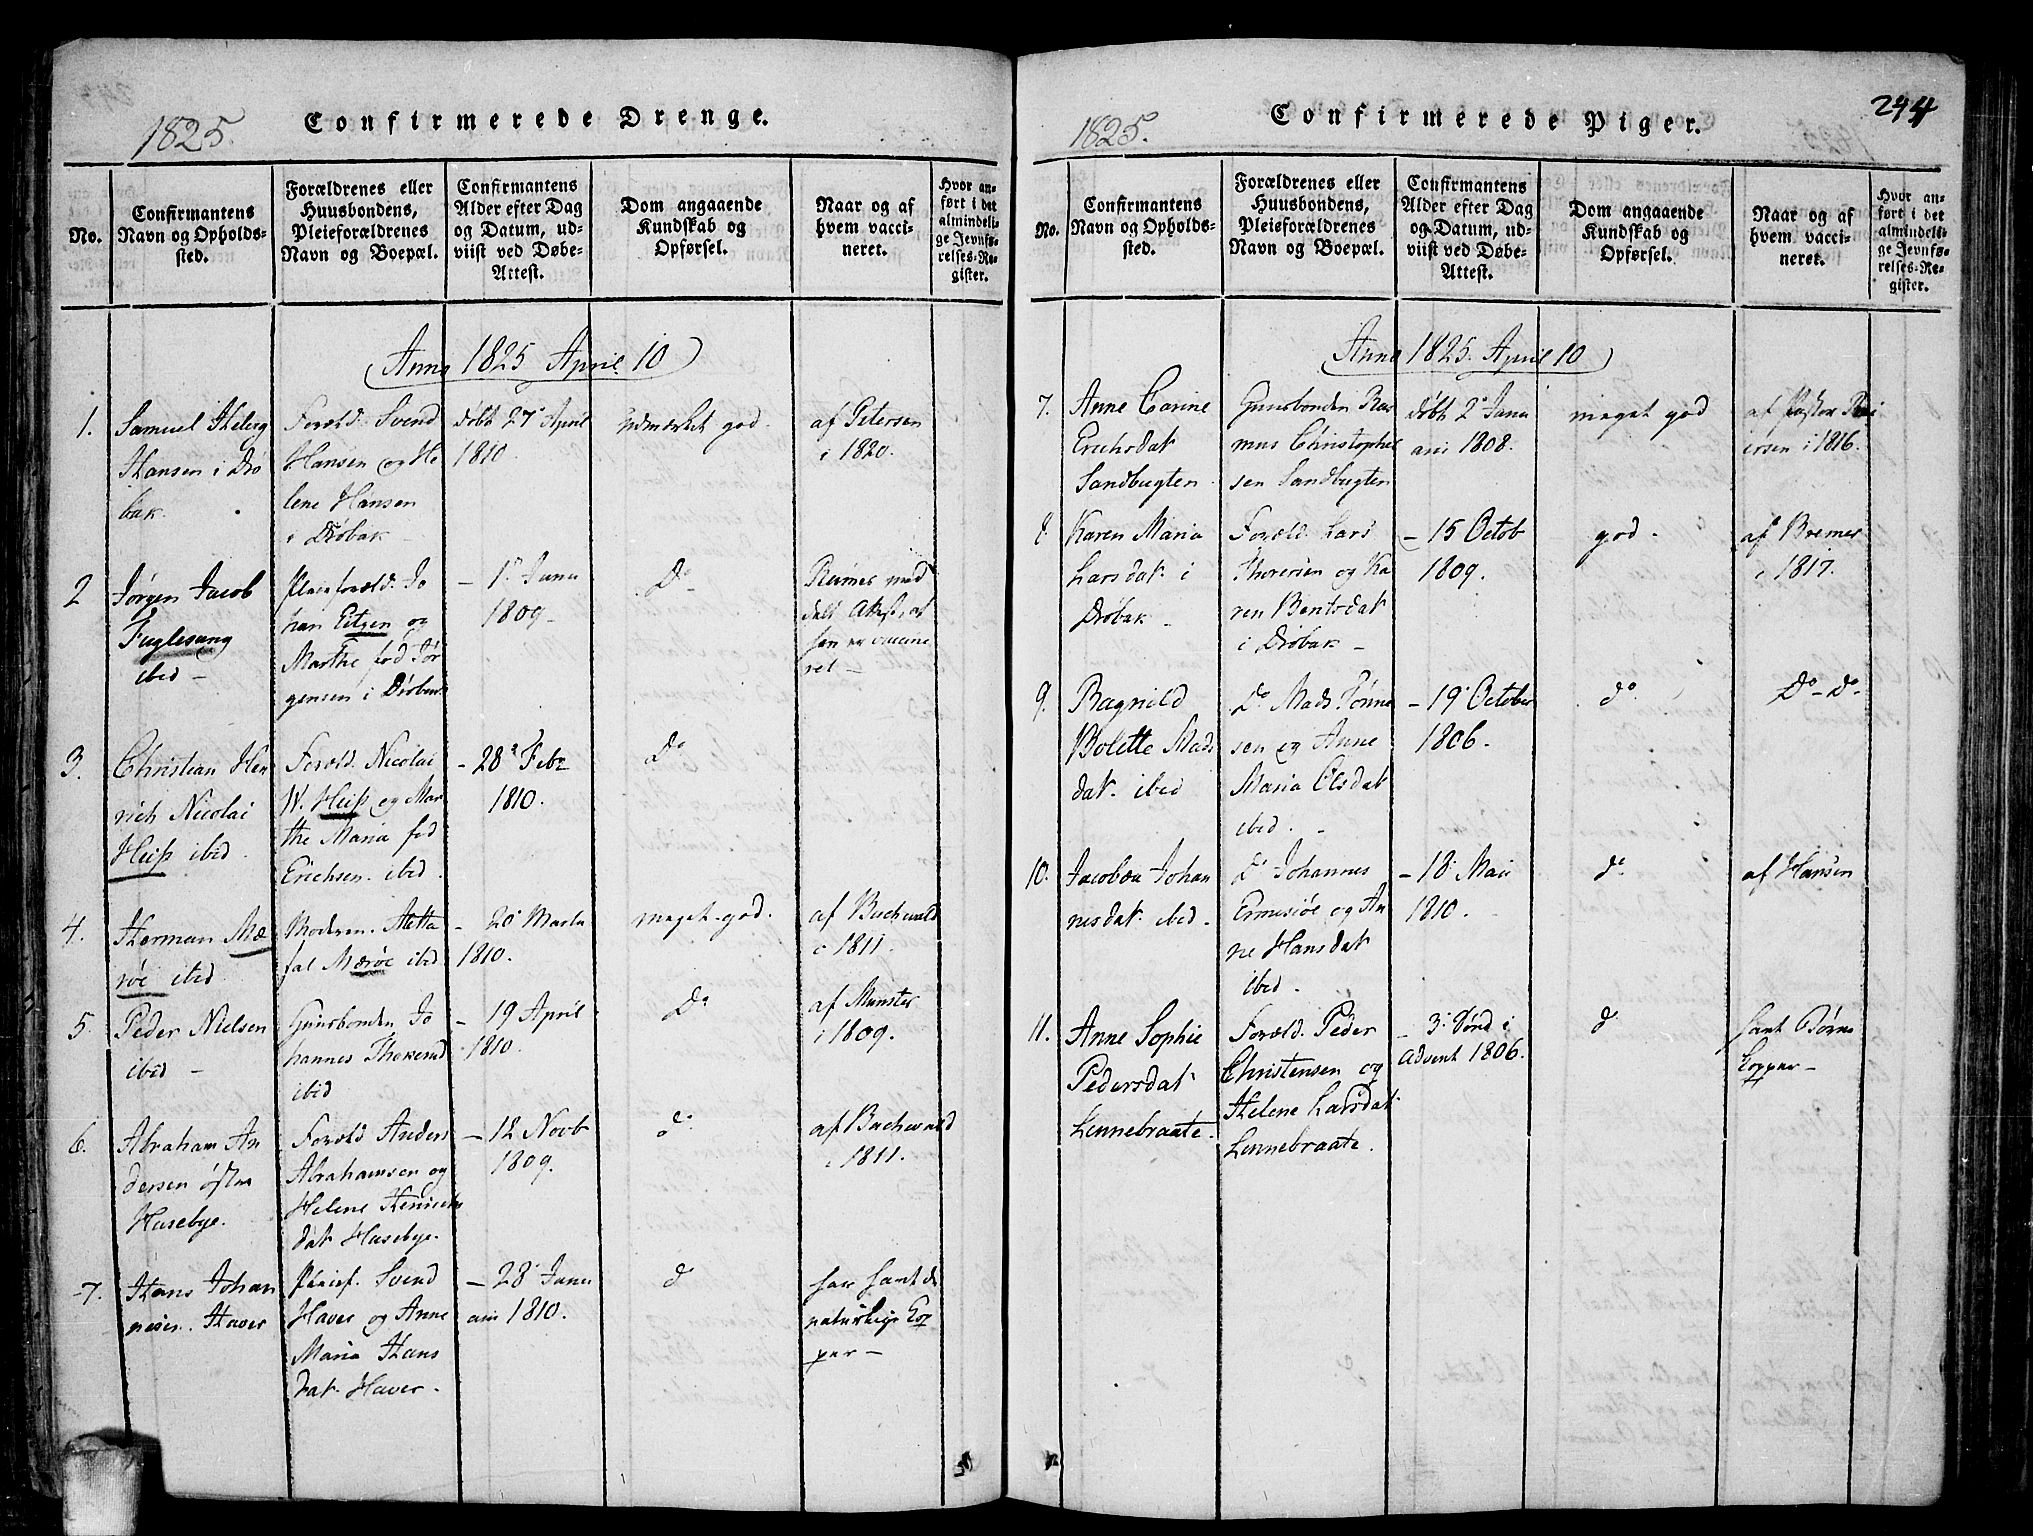 1825.
Confirmerede Drenge.
No.
Confirmantens
Navn og Opholds-
sted.
Forældrenes eller
Huusbondens,
Pleieforældrenes
Navn og Boepæl.
Confirmantens
Alder efter Dag
og Datum, ud-
viist ved Døbe-
Attest.
Dom angaaende
Kundskab og
Opførsel.
Naar og af
hvem vacci-
neret.
Hvor an-
ført i det
almindeli-
ge Jevnfø-
relses-Re-
gister.
Anno 1825 April 10
1.
Samuel
Hansen i Drø
bak.
Foræld. Svend
Hansen og He
lene Hansen
i Drøbak
døbt 27 April
1810.
udmærket god.
af Petersen
i 1820.
2
Jørgen Jacob
Fuglesang
ibid
Pleieforæld. Jo
han Eitzen og
Marthe fød Jør
gensen i Drøbak
1 Janu
1809
Do
Reimers med
delt Attest, at
han er vaccine
ret
3.
Christian Hen
rich Nicolai
Heiß ibid
Foræld. Nicolai
W. Heiß og Mar
the Maria fød
Erichsen ibid.
28 Febr
1810.
Do
4.
Herman Mæ
røe ibid
Moderen
Mærøe ibid
20 Marts
1810.
meget god.
af Buchwald
i 1811
5.
Peder Nielsen
ibid
Huusbonden Jo
hannes
ibid
19 April
1810.
Do
af Munster
i 1809.
6.
Abraham An
dersen østre
Husebye.
Foræld Anders
Abrahamsen og
Helene Henrichs
dat Husebye.
12 Novb
1809.
do
af Buchwald
i 1811.
7.
Hans Johan
nesen Haver
Pleief. Svend
Haver og Anne
Maria Hans
dat Haver.
28 Janu
arii 1810.
d
har havt de
naturlige Kop
per
1825.
Confirmerede Piger.
244
No.
Confirmantens
Navn og Opholds-
sted.
Forældrenes eller
Huusbondens,
Pleieforældrenes
Navn og Boepæl.
Confirmantens
Alder efter Dag
og Datum, ud-
viist ved Døbe-
Attest.
Dom angaaende
Kundskab og
Opførsel.
Naar og af
hvem vacci-
neret.
Hvor an-
ført i det
almindeli-
ge Jevnfø-
relses-Re-
gister.
Anno 1825. April 10
7.
Anne Carine
Erichsdat
Sandbugten
Huusbonden Ras
mus Christopher
sen Sandbugten
døbt 2 Janu
arii 1808.
meget god
af Pastor Rei
ersen i 1816.
8
Karen Maria
Larsdat. i
Drøbak
Foræld. Lars
Thoresen og Ka
ren Bentsdat
i Drøbak
15 Octob
1809.
god.
af Bremer
i 1817.
9.
Ragnild
Bolette Mads
dat. ibid
Do Mads Tønne
sen og Anne
Maria Olsdat
ibid.
19 October
1806.
do
Do Do
10.
Jacobæa Johan
nesdat ibid.
Do Johannes
Ermesiøe og An
ne Hansdat
ibid.
18 Maii
1810.
do
af Hansen
11.
Anne Sophie
Pedersdat
Lennebraate.
Foræld. Peder
Christensen og
Helene Larsdat
Lennebraate.
3 Sønd i
Advent 1806.
d
havt Børne
Kopper